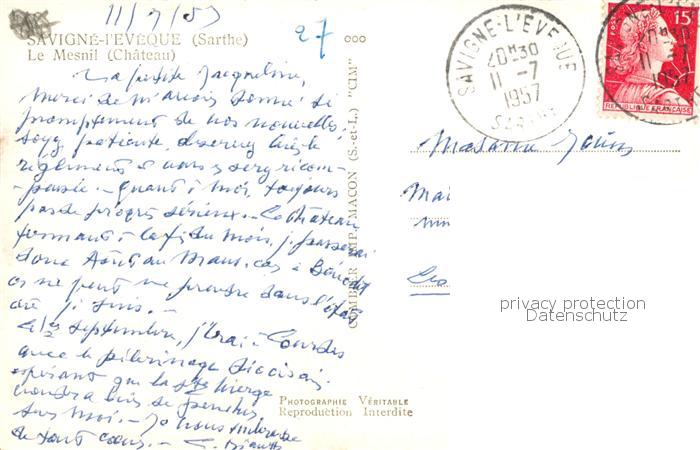 11/7/57
27
SAVIGNÉ-l'EVÊQUE (Sarthe)
Le Mesnil (Château)
La petite Jacqueline,
Merci de m'avoir donné si
promptement de vos nouvelles,
soyez patiente, observez bien le
règlement & vous serez récom-
-pensée. - Quant à moi, toujours
pas de progrès sérieux. - Le château
fermant à la fin du mois, je passerai
donc Août au Mans, car à
on ne peut me prendre dans l'état
où je suis. -
septembre, j'irai à Lourdes
avec le pèlerinage diocésain
espérant que la Ste Vierge
voudra bien se pencher
sur moi. - Je vous embrasse
de tout cœur. -
COMBIER IMP. MACON (S.-et-L.) "CIM"
PHOTOGRAPHIE VÉRITABLE
Reproduction Interdite
SAVIGNE-L'EVEQUE
20H30
11-7
1957
SARTHE
15F
POSTES
REPUBLIQUE FRANÇAISE
20H30
11-7
1957
Madame
privacy protection
Datenschutz